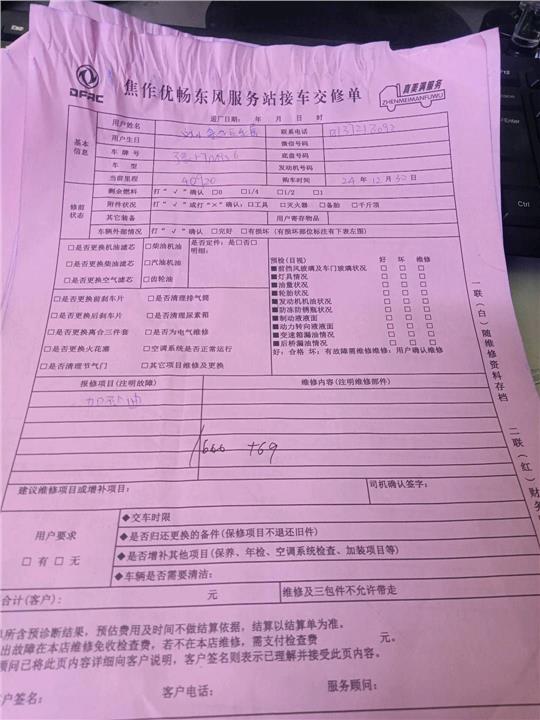 DFAC
焦作优畅东风服务站接车交修单
真美满服务
ZHENMEIMANFUWU
返厂日期： 年 月 日 时
基本信息
用户姓名
联系电话
用户生日
微信号码
车牌号
底盘号码
车型
发动机号码
当前里程 购车时间 24年12月30日
修前状态
剩余燃料 打“√”确认：□0 □1/4 □1/2 □1
附件状况 打“√”或打“×”确认：□工具 □灭火器 □备胎 □千斤顶
其它装备 用户寄存物品
车辆外部情况 打“√”确认 □完好 □有损坏（有损部位标注有下表左图）
□是否更换机油滤芯 □柴油机油 是否定件：是□否□
明细：
□是否更换柴油滤芯 □汽油机油
□是否更换空气滤芯 □齿轮油
□是否更换前刹车片 □是否清理排气筒
□是否更换后刹车片 □是否清理尿素箱
□是否更换离合三件套 □是否为电气维修
□是否更换火花塞 □空调系统是否正常运行
□是否清理节气门 □其它项目维修及更换
预检（目视） 好 坏 维修
■前挡风玻璃及车门玻璃状况 □ □ □
■灯具情况 □ □ □
■油量状况 □ □ □
■轮胎状况 □ □ □
■发动机机油状况 □ □ □
■防冻防锈瓶状况 □ □ □
■制动液液面 □ □ □
■动力转向液液面 □ □ □
■变速箱漏油情况 □ □ □
■后桥漏油情况 □ □ □
好：合格 坏：有故障需维修维修：用户确认维修
报修项目（注明故障） 维修内容（注明维修部件）
666 +69
建议维修项目或增补项目： 司机确认签字：
用户要求
□有□无
◆交车时限
◆是否归还更换的备件（保修项目不退还旧件）
◆是否增补其他项目（保养、年检、空调系统检查、加装项目等）
◆车辆是否需要清洁：
合计（客户）： 元 维修及三包件不允许带走
所含预诊断结果，预估费用及时间不做结算依据，结算以结算单为准。
出故障在本店维修免收检查费，若不在本店维修，需支付检查费 元。
顾问已将此页内容详细向客户说明，客户签名则表示已理解并接受此页内容。
客户签名： 客户电话： 服务顾问：
一联（白）随维修资料存档
二联（红）财务
Ctrl
Enter